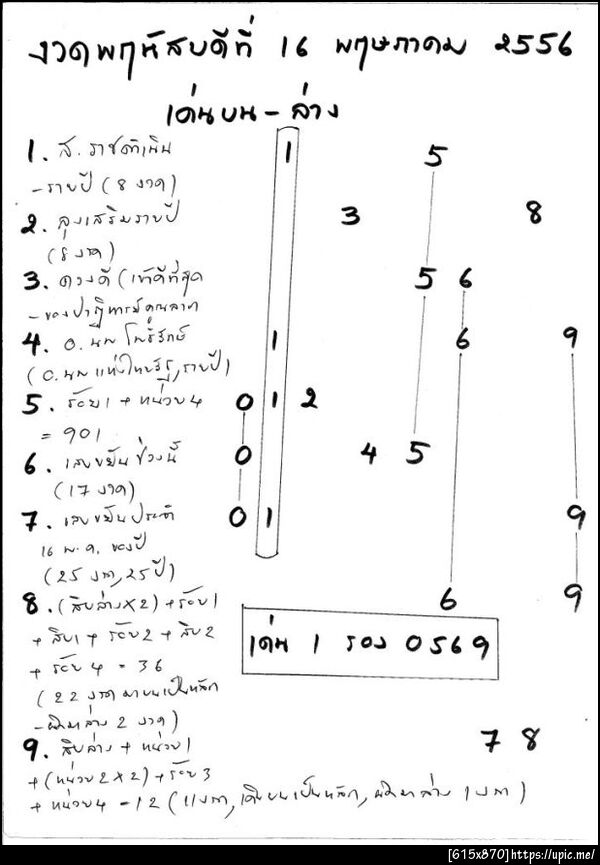 งวดพฤหัสบดีที่ 16 พฤษภาคม 2556
เด่นบน - ล่าง
1. ส. ราชดำเนิน 1 5
- รายปี (8 งวด)
2. ลุงเสริมรายปี 3 8
(8 งวด)
3. ดวงดี (เข้าดีที่สุด 5 6
- ของปาฏิหารย์คุณลาภ
4. อ. นพ โพธิ์รักษ์ 1 6 9
(อ. นพ แห่งไทยรัฐ, รายปี)
5. ร้อย1 + หน่วย4 0 1 2
= 901
6. เลขขยันช่วงนี้ 0 4 5
(17 งวด)
7. เลขขยันประจำ 0 1 9
16 พ.ค. ของปี
(25 งวด, 25 ปี)
8. (สิบล่าง x 2) + ร้อย1 6 9
+ สิบ1 + ร้อย2 + สิบ2
+ ร้อย4 = 36
เด่น 1 รอง 0569
(22 งวด มาบนเป็นหลัก
- ผิดมาล่าง 2 งวด)
9. สิบล่าง + หน่วย1 7 8
+ (หน่วย2 x 2) + ร้อย3
+ หน่วย4 = 12 (11 งวด, เดินบนเป็นหลัก, ผิดมาล่าง 1 งวด)
[615x870]https://upic.me/